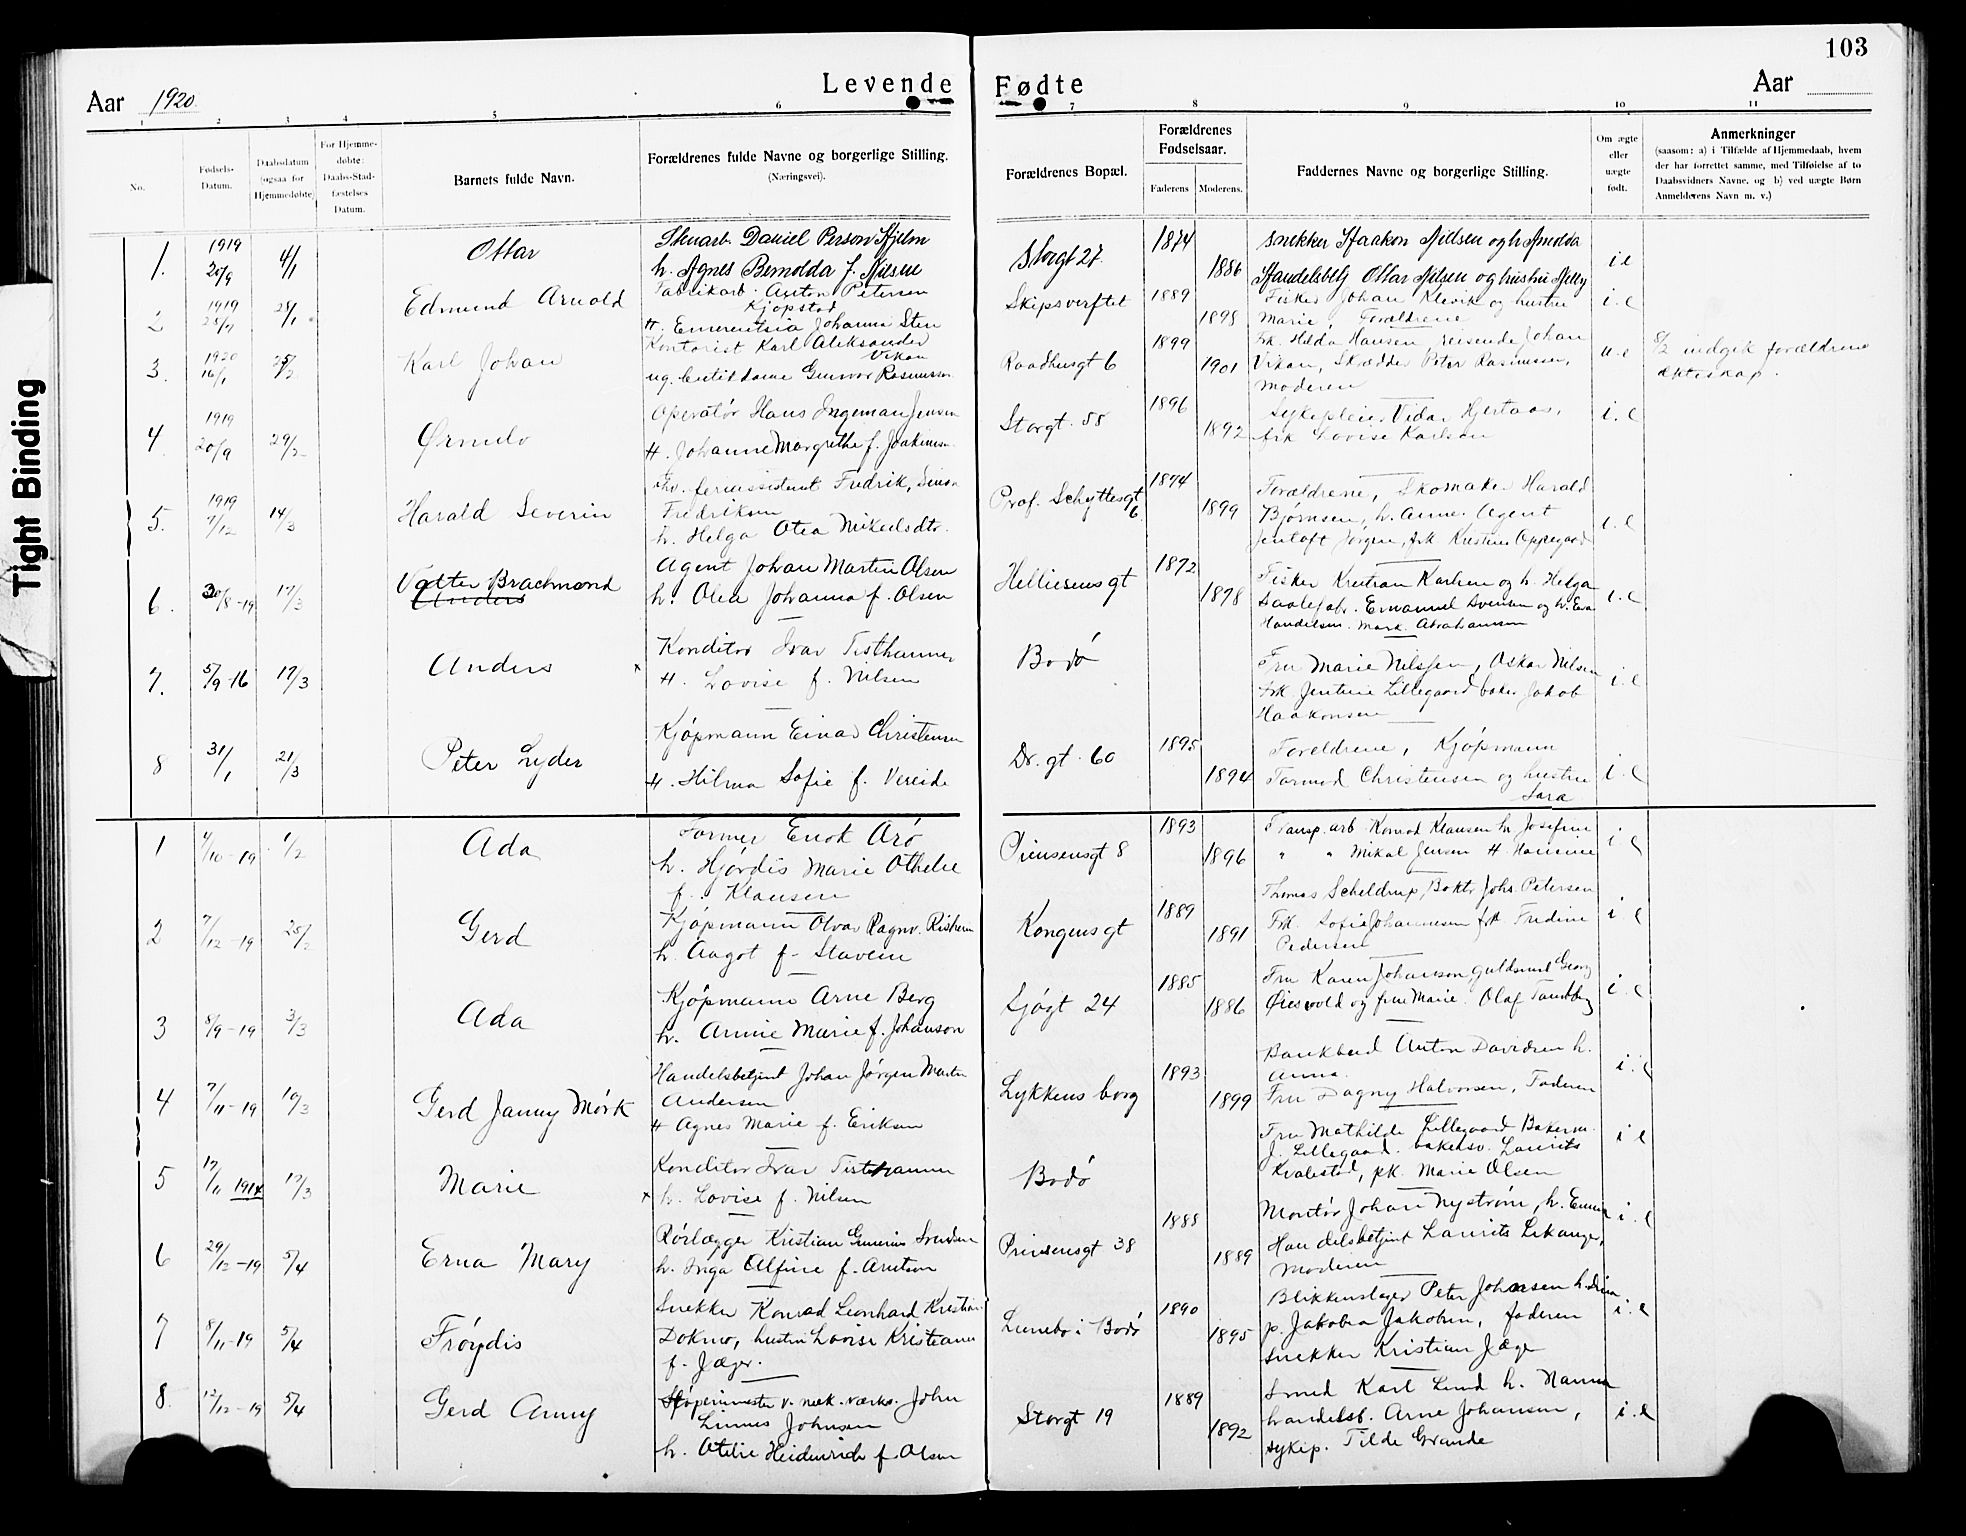 103
Levende Fødte
Aar 1920.
Aar
1 2 3 4 5 6 7 8 9 10 11
No.
Fødsels-
Datum.
Daabsdatum
(ogsaa for
Hjemmedøbte)
For Hjemme-
døbte:
Daabs-Stad-
fæstelses
Datum.
Barnets fulde Navn.
Forældrenes fulde Navne og borgerlige Stilling.
(Næringsvei).
Forældrenes Bopæl.
Forældrenes
Fødselsaar.
Faderens
Moderens.
Faddernes Navne og borgerlige Stilling.
Om ægte
eller
uægte
født.
Anmerkninger
(saasom: a) i Tilfælde af Hjemmedaab, hvem
der har forrettet samme, med Tilføielse af to
Daabsvidners Navne, og b) ved uægte Børn
Anmelderens Navn m. v.)
1. 1919 20/9 4/1 Ottar
Stenarb. Daniel Person Hjelm
h. Agnes Bernolda f. Nilsen
Storgt 27. 1874 1886
Snekker Haakon Nilssen og h.
Handelsbetj Ottar Nilsen og hustru Nelly
i e
2 1919 25/1 Edmund Arnold
Fabrikarb. Anton Petersen
Kjøpstad
H. Emerentsia Johanna Sten
Skipsverftet 1889 1895
Fisker Johan Klevik og hustru
Marie, Forældrene
i. e
3. 1920 16/1 25/2 Karl Johan
Kontorist Karl Aleksander
Vikan
ug. butikdame Gunvor Rasmussen
Raadhusgt 6 1899 1901
Frk. Hilda Hansen, reisende Johan
Vikan, Skrædder Peter Rasmussen,
Moderen
u. e
5/2 indgik forældrene
ekteskap.
4. 1919 20/9 29/2 Ørnulv
Operatør Hans Ingeman Jensen
H. Johanne Margrethe f. Joakimsen
Storgt. 55 1896 1892
Sykepleier Vidar Hjertaas,
frk Lovise Karlsen
i. e
5. 1919 7/12 14/3 Harald Severin
Fredrik, Simon
Fredriksen
h. Helga Otea Mikelsdtr.
Prof. Schyttesgt 6. 1874 1899
Forældrene, Skomaker Harald
Bjørnsen, h. Anne. Agent
Jentoft Jørgen, frk Kristine Oppegaard
i. e
6. 30/8-19 17/3 Valter Brachmond
Anders
Agent Johan Martin Olsen
h. Olea Johanna f. Olsen
Helliesensgt 1872 1878
Fisker Kristian Karlsen og h. Helga
Emanuel Svensen og h. Eva
Handelsm. Mark. Abrahamsen
i. e
7. 5/9-16 17/3 Anders
x Konditor Ivar Tisthamner
H. Lovise f. Nilsen
Bodø
Fru Marie Nilssen, Oskar Nilsen
Frk. Jentine Lillegaard baker Jakob
Haakonsen
i. e
8 31/1 21/3 Peter Lyder
Kjøpmann Einar Christensen
H. Hilma Sofie f. Vereide
Dr. gt. 60 1895 1894
Foreldrene, Kjøpmann
Tormod Christensen og hustru
Sara
i. e
1 4/10-19 1/2 Ada
Former Enok Arø
h. Hjørdis Marie Othelie
f. Klausen
Prinsensgt 8 1893 1896
Transp. arb Konrad Klausen h. Josefine
" " Mikal Jensen H. Hansine
i e
2 7/12-19 25/2 Gerd
Kjøpmann Olvar Ragnv. Risheim
h. Aagot f. Stavem
Kongensgt 1889 1891
Thomas Scheldrup, Boktr Johs. Petersen
Frk. Sofie Johannesen frk Fredine
Pedersen
i e
3 8/9-19 3/3 Ada
Kjøpmann Arne Berg
h. Annie Marie f. Johanson
Sjøgt 24 1885 1886
Fru Karen Johanson, guldsmed Georg
Øiesvold og frue Marie. Olaf Tandberg
i. e
4 7/11-19 10/3 Gerd Janny Mørk
Handelsbetjent Johan Jørgen Martin
Andersen
H Agnes Marie f. Eriksen
Lykkens borg 1893 1899
Bankbud Anton Davidsen h.
Anna.
Fru Dagny Halvorsen, Faderen
i. e
5 17/11 1914 17/3 Marie
x Konditor Ivar Tisthamner
h. Lovise f. Nilsen
Bodø
Fru Mathilde Lillegaard Bakerm.
J. Lillegaard. bakersv. Laurits
Kvalestad, frk. Marie Olsen
i e
6 29/12-19 5/4 Erna Mary
Rørlægger Kristian Gunerius Svendsen
h. Inga Alfine f. Arntsen
Prinsensgt 38 1885 1889
Montør Johan Nystrøm, h. Emma
Handelsbetjent Laurits Lekanger,
Moderen
i. e
7 8/11-19 5/4 Frøydis
Snekker Konrad Leonhard Kristian
Dokmo, hustru Lovise Kristiane
f. Jæger.
Lunebo i Bodø 1890 1895
Blikkenslager Peter Johansen h.
p. Jakobea Jakobsen, faderen
Snekker Kristian Jæger
i. e
8. 12/12-19 5/4 Gerd Anny
Støperimester v. mek. værks. John
Linnes Johnsen
h. Otelie Heidenreich f. Olsen
Storgt 19 1889 1892
Smed Karl Lund h. Nanna
handelsb. Arne Johansen,
sykep. Tilde Grande
i. e
Tight Binding